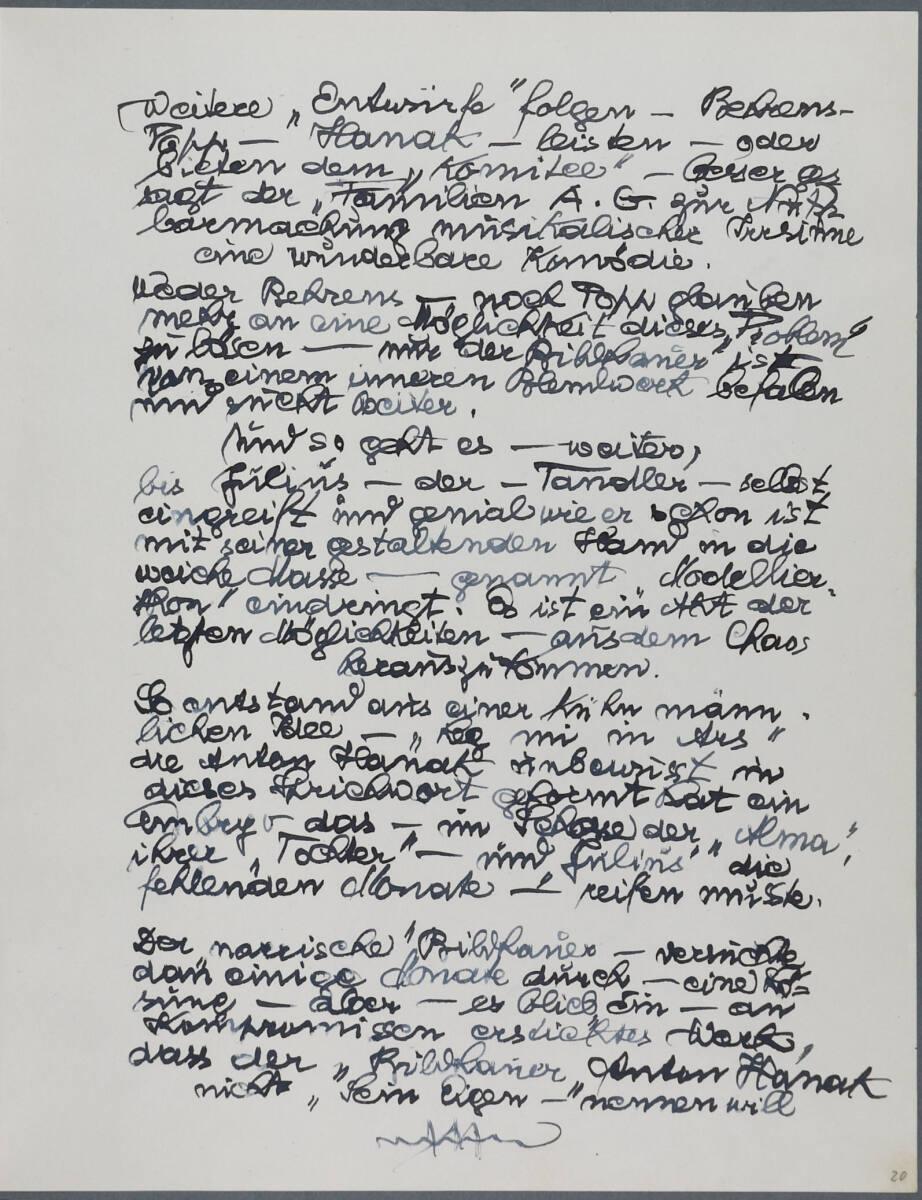 Weitere „Entwürfe" folgen – Behrens-
Popp – Hanak – leisten – oder
bieten dem „Komitee" – besser es
sagt der „Familien A. G. zur Nutz-
barmachung musikalischer Irrsinne
eine wunderbare Komödie.
Weder Behrens – noch Popp glauben
mehr an eine Möglichkeit dieses „Problem"
zu lösen – nur der „Bildhauer" ist
von einem inneren befallen
und sucht weiter.
Und so geht es – weiter,
bis Julius – der – Tandler – selbst
eingreift und genial wie er schon ist
mit seiner gestaltenden Hand in die
weiche Masse – genannt „Modellier-
thon" eindringt. Es ist ein Akt der
letzten Möglichkeiten – aus dem Chaos
herauszukommen.
So entstand aus einer kühn männ-
lichen Idee – „leg mi in Ars"
die Anton Hanak unbewusst in
dieses geformt hat ein
Embryo – das – im Schosse der „Alma",
ihrer „Tochter" – und Julius' die
fehlenden Monate – reifen musste.
Der „narrische" Bildhauer – versuchte
dan einige Monate durch – eine Lö-
sung – aber – es blieb Ein – an
Kompromissen ersticktes Werk,
dass der „Bildhauer Anton Hanak
nicht „Sein Eigen –" nennen will
20